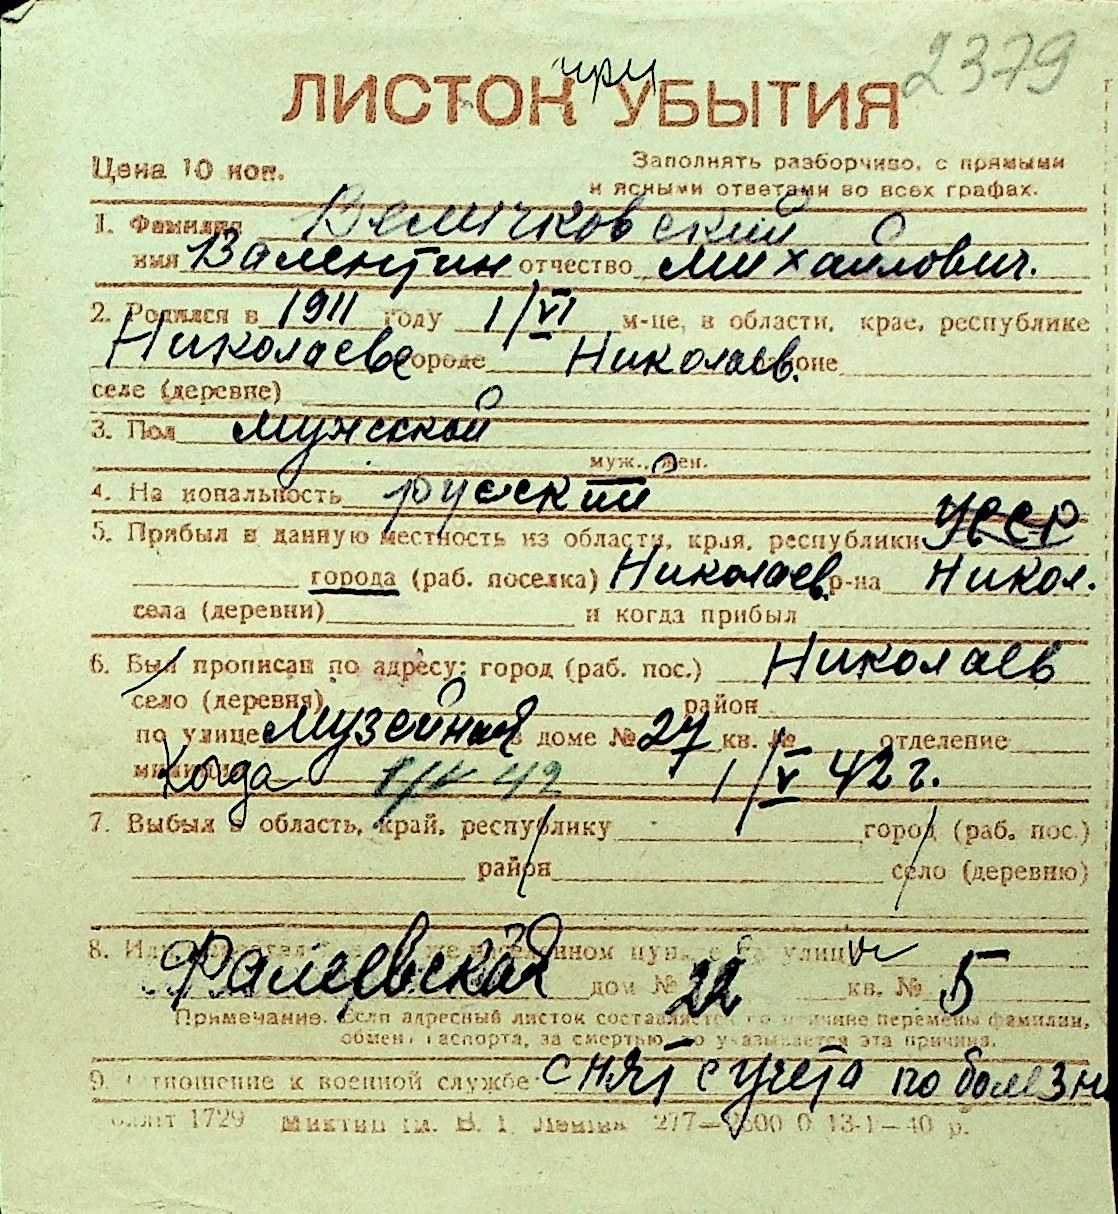 2379
при
ЛИСТОК УБЫТИЯ
Цена 10 коп.
Заполнять разборчиво, с прямыми
и ясными ответами во всех графах.
1. Фамилия Величковский
имя Валентин отчество Михайлович.
2. Родился в 1911 году 1/VI м-це, в области, крае, республике
Николаеве городе Николаев. районе
селе (деревне)
3. Пол мужской
муж., жен.
4. Национальность русский
5. Прибыл в данную местность из области, края, республики УССР
города (раб. поселка) Николаев р-на Никол.
села (деревни) и когда прибыл
6. Был прописан по адресу: город (раб. пос.) Николаев
село (деревня) район
по улице Музейная в доме № 27 кв. № отделение
милиции Когда 1/V 42 1/V 42 г.
7. Выбыл в область, край, республику город (раб. пос.)
район село (деревню)
8. же населенном пункте на улицу
Фалеевская дом № 22 кв. № 5
Примечание. Если адресный листок составляется по причине перемены фамилии,
обмена паспорта, за смертью, то указывается эта причина.
9. Отношение к военной службе снят с учета по болезни
1729 277— 0 13-1—40 р.